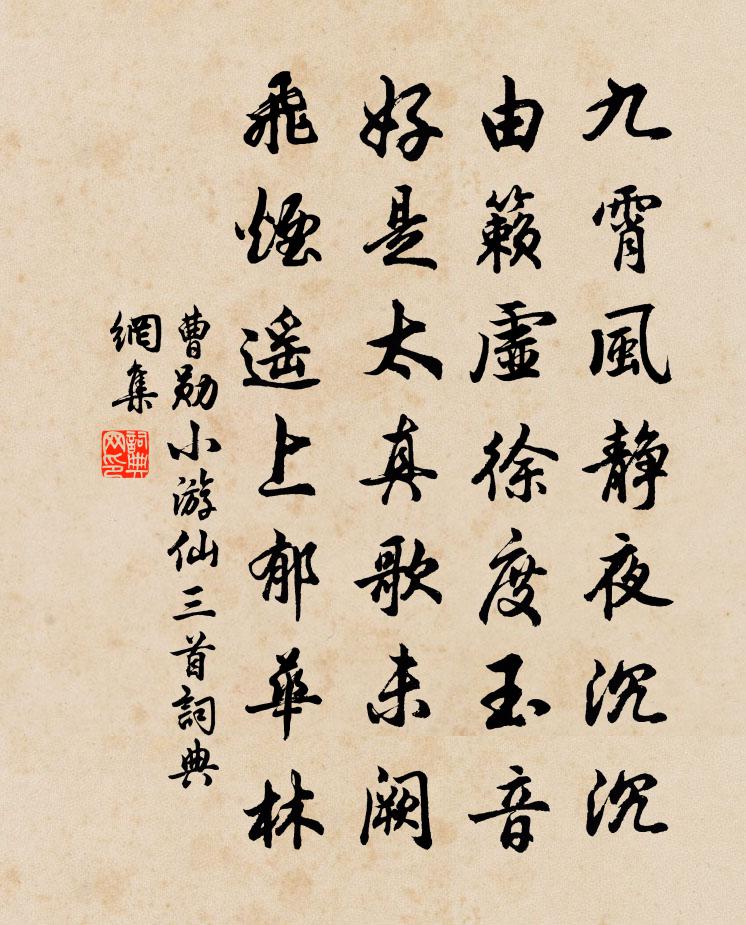 九霄風静夜沉沉
由籟虚徐度玉音
好是太真歌未阙
飛煙遥上郁華林
曹勋小游仙三首詞典
網集
詞典网印